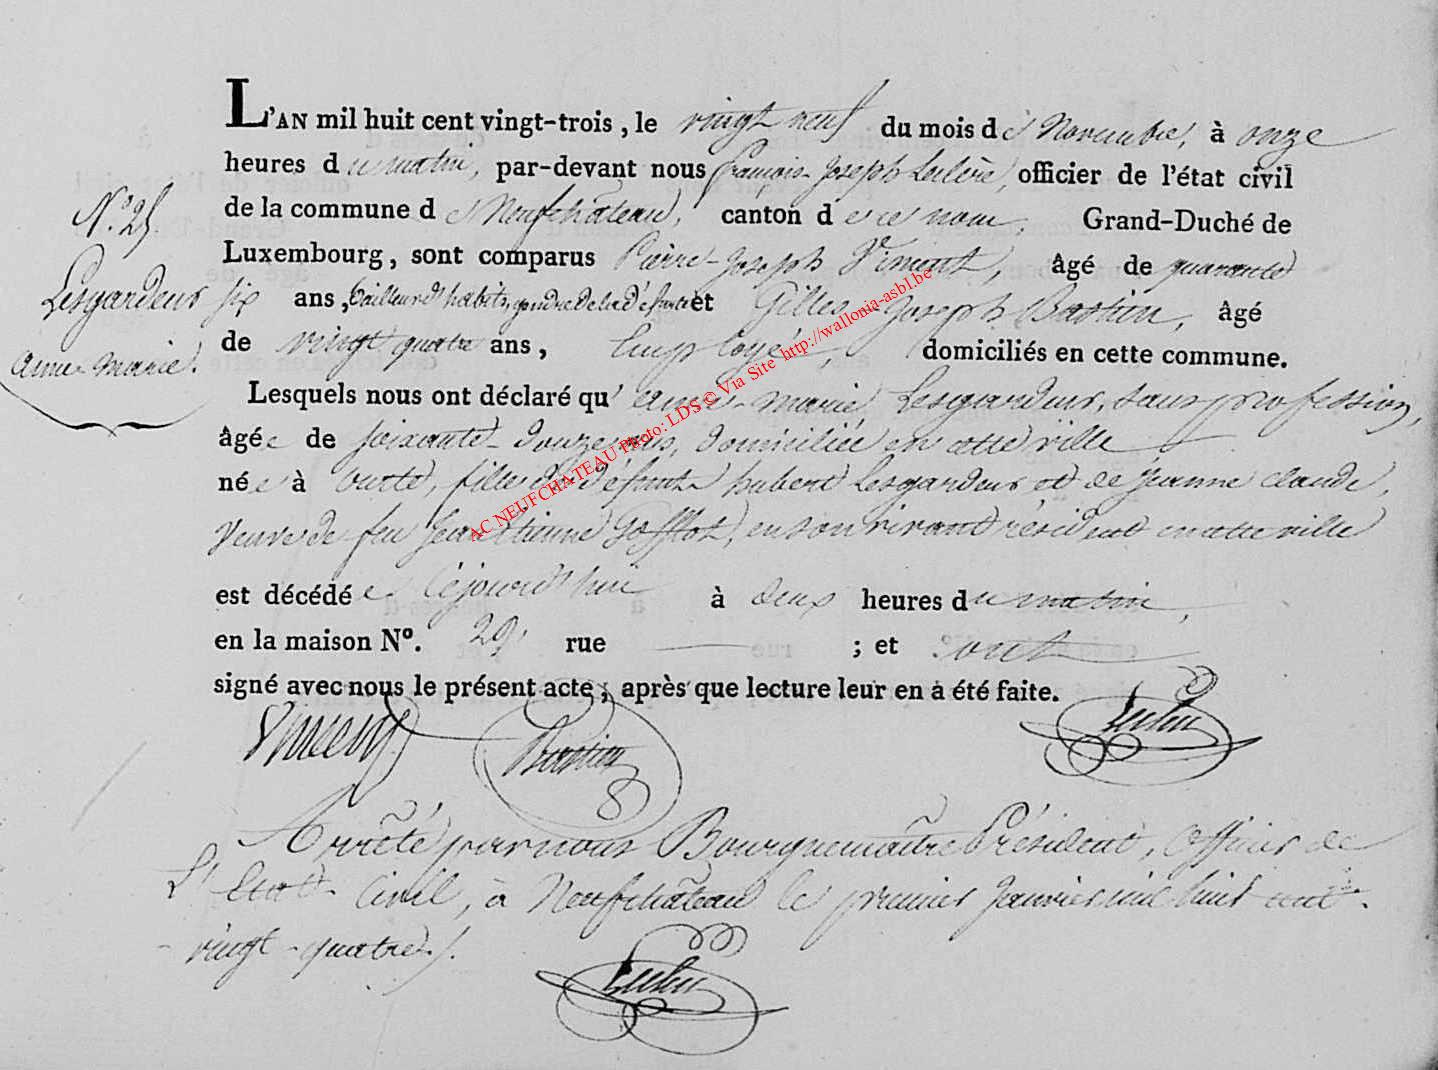 L'AN mil huit cent vingt-trois, le vingt neuf du mois de Novembre, à onze
heures du matin, par-devant nous françois-Joseph Leclère, officier de l'état civil
de la commune de Neufchâteau, canton de ce nom, Grand-Duché de
Luxembourg, sont comparus Pierre-Joseph âgé de quarante
six ans, tailleur d'habits, gendre de la défunte et Gilles Joseph Bastin, âgé
de vingt quatre ans, Employé, domiciliés en cette commune.
Lesquels nous ont déclaré qu'anne-marie Lesgardeur, sans profession,
âgée de soixante-douze ans, domiciliée en cette ville
née à fille de défunt hubert Lesgardeur et de jeanne claude,
veuve de feu Jean Etienne Gofflot, en son vivant résident en cette ville
est décédée cejourd'hui à deux heures du matin,
en la maison N°. 29, rue — ; et ont
signé avec nous le présent acte, après que lecture leur en a été faite.
N° 25
Lesgardeur
anne marie.
Bastin
Arrêté par nous Bourguemaître Président, officier de
L'Etat Civil, à Neufchâteau le premier Janvier mil huit cent
vingt-quatre.
AC NEUFCHATEAU Photo: LDS © Via Site http://wallonia-asbl.be